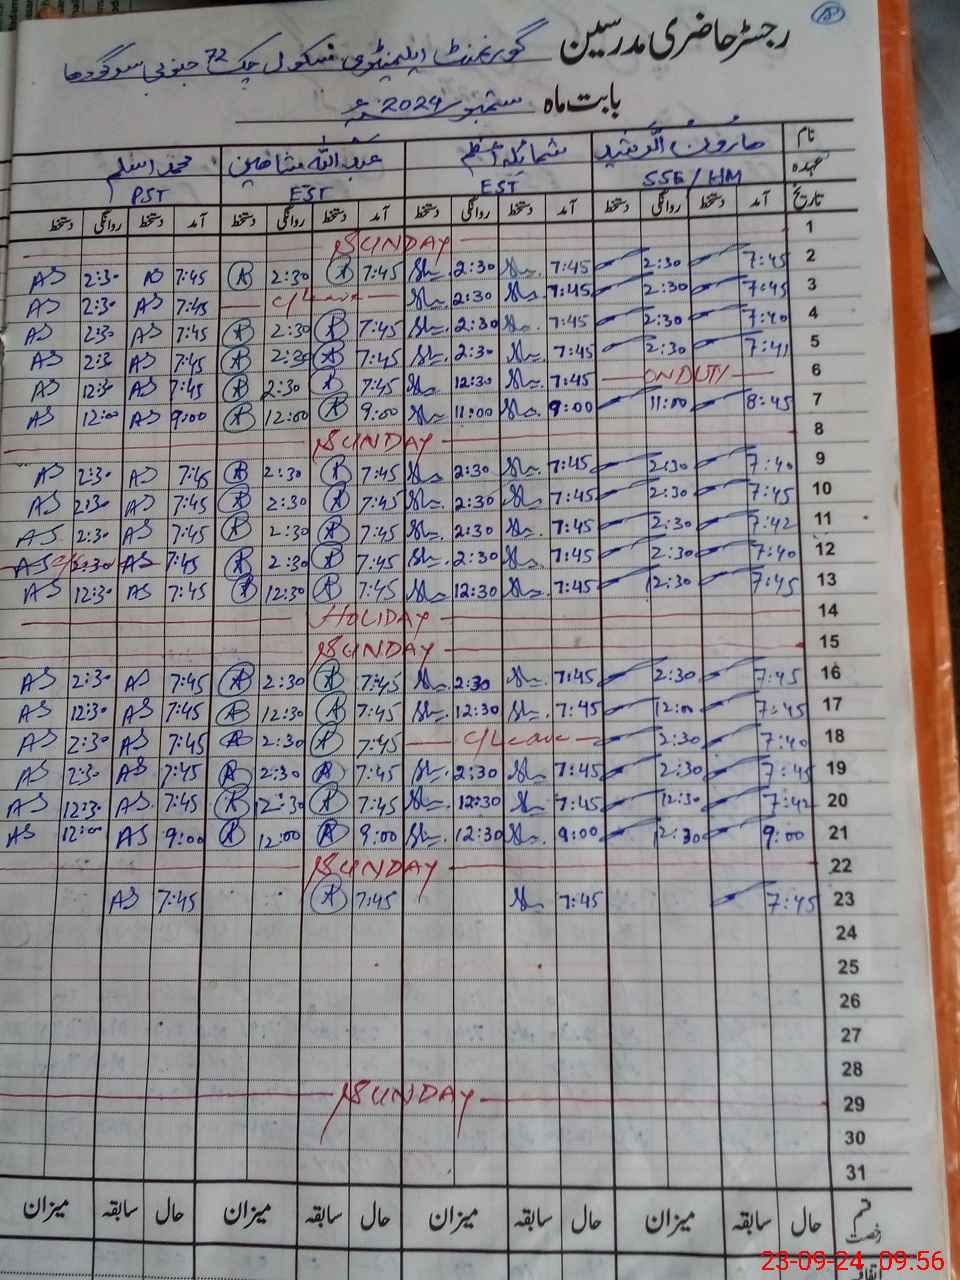 رجسٹر حاضری مدرسین گورنمنٹ ایلیمنٹری سکول چک 72 جنوبی سرگودھا
بابت ماہ ستمبر 2024ء
نام ہارون الرشید شمائلہ اعظم عبداللہ شاھین محمد اسلم
عہدہ SSE/HM EST EST PST
تاریخ آمد دستخط روانگی دستخط آمد دستخط روانگی دستخط آمد دستخط روانگی دستخط آمد دستخط روانگی دستخط
SUNDAY 1
AS 2:30 AS 7:45 A 2:30 A 7:45 2:30 7:45 2:30 7:45 2
AS 2:30 AS 7:45 C/Leave 2:30 7:45 2:30 7:45 3
AS 2:30 AS 7:45 A 2:30 A 7:45 2:30 7:45 2:30 7:40 4
AS 2:3 AS 7:45 A 2:30 A 7:45 2:30 7:45 2:30 7:41 5
AS 12:3 AS 7:45 A 2:30 A 7:45 12:30 7:45 ON DUTY 6
AS 12:00 AS 9:00 A 12:00 A 9:00 11:00 9:00 11:00 8:45 7
SUNDAY 8
AS 2:30 AS 7:45 A 2:30 A 7:45 2:30 7:45 2:30 7:40 9
AS 2:30 AS 7:45 A 2:30 A 7:45 2:30 7:45 2:30 7:45 10
AS 2:30 AS 7:45 A 2:30 A 7:45 2:30 7:45 2:30 7:42 11
AS 2:30 AS 7:45 A 2:30 A 7:45 2:30 7:45 2:30 7:40 12
AS 12:30 AS 7:45 A 12:30 A 7:45 12:30 7:45 12:30 7:45 13
HOLIDAY 14
SUNDAY 15
AS 2:30 AS 7:45 A 2:30 A 7:45 2:30 7:45 2:30 7:45 16
AS 12:30 AS 7:45 A 12:30 A 7:45 12:30 7:45 12:00 7:45 17
AS 2:30 AS 7:45 A 2:30 A 7:45 C/Leave 2:30 7:40 18
AS 2:30 AS 7:45 A 2:30 A 7:45 2:30 7:45 2:30 7:45 19
AS 12:3 AS 7:45 A 12:30 A 7:45 12:30 7:45 12:30 7:42 20
AS 12:00 AS 9:00 A 12:00 A 9:00 12:30 9:00 12:30 9:00 21
SUNDAY 22
AS 7:45 A 7:45 7:45 7:45 23
24
25
26
27
28
SUNDAY 29
30
31
قسم رخصت حال سابقہ میزان حال سابقہ میزان حال سابقہ میزان حال سابقہ میزان
23-09-24 09:56